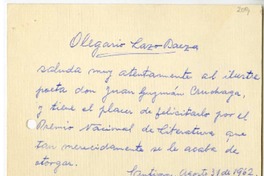 Olegario Lazo Baeza
saluda muy atentamente al ilustre
poeta don Juan Guzmán Cruchaga,
y tiene el placer de felicitarlo por el
Premio Nacional de Literatura que
tan merecidamente se le acaba de
otorgar.
Santiago, Agosto 31 de 1962.